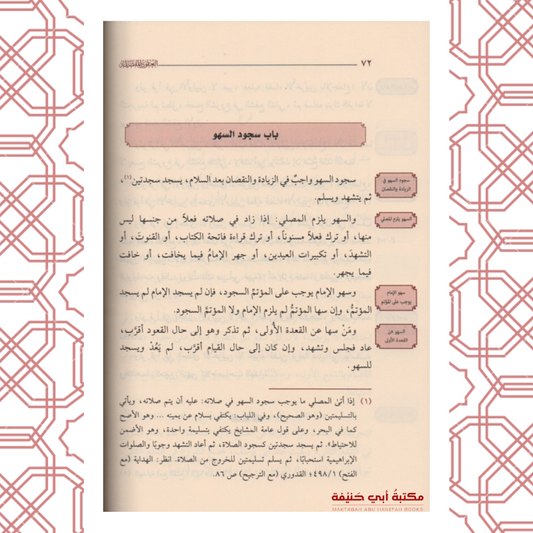 ٧٢
باب سجود السهو
سجود السهو في
الزيادة والنقصان
سجود السهو واجبٌ في الزيادة والنقصان بعد السلام، يسجد سجدتين(١)،
ثم يتشهد ويسلم.
السهو يلزم المصلي
والسهو يلزم المصلي: إذا زاد في صلاته فعلاً من جنسها ليس
منها، أو ترك فعلاً مسنوناً، أو ترك قراءة فاتحة الكتاب، أو القنوتَ، أو
التشهدَ، أو تكبيرات العيدين، أو جهر الإمامُ فيما يخافت، أو خافت
فيما يجهر.
سهو الإمام
يوجب على المؤتم
وسهو الإمام يوجب على المؤتمّ السجود، فإن لم يسجد الإمام لم يسجد
المؤتمُّ، وإن سها المؤتمُّ لم يلزمِ الإمامَ ولا المؤتمَّ السجود.
السهو عن
القعدة الأولى
ومَنْ سها عن القعدة الأُولى، ثم تذكر وهو إلى حال القعود أقرَب،
عاد فجلس وتشهد، وإن كان إلى حال القيام أقرَب، لم يَعُدْ ويسجد
للسهو.
(١) إذا أتىٰ المصلي ما يوجب سجود السهو في صلاته: عليه أن يتم صلاته، ويأتي
بالتسليمتين (وهو الصحيح)، وفي اللباب: يكتفي بسلام عن يمينه ... وهو الأصح
كما في البحر، وعلى قول عامة المشايخ يكتفي بتسليمة واحدة، وهو الأضمن
للاحتياط». ثم يسجد سجدتين كسجود الصلاة، ثم أعاد التشهد وجوبًا والصلوات
الإبراهيمية استحبابًا، ثم يسلم تسليمتين للخروج من الصلاة. انظر: الهداية (مع
الفتح) ٤٩٨/١؛ القدوري (مع الترجيح) ص ٨٦.
مكتبة أبي حنيفة
MAKTABAH ABU HANIFAH BOOKS